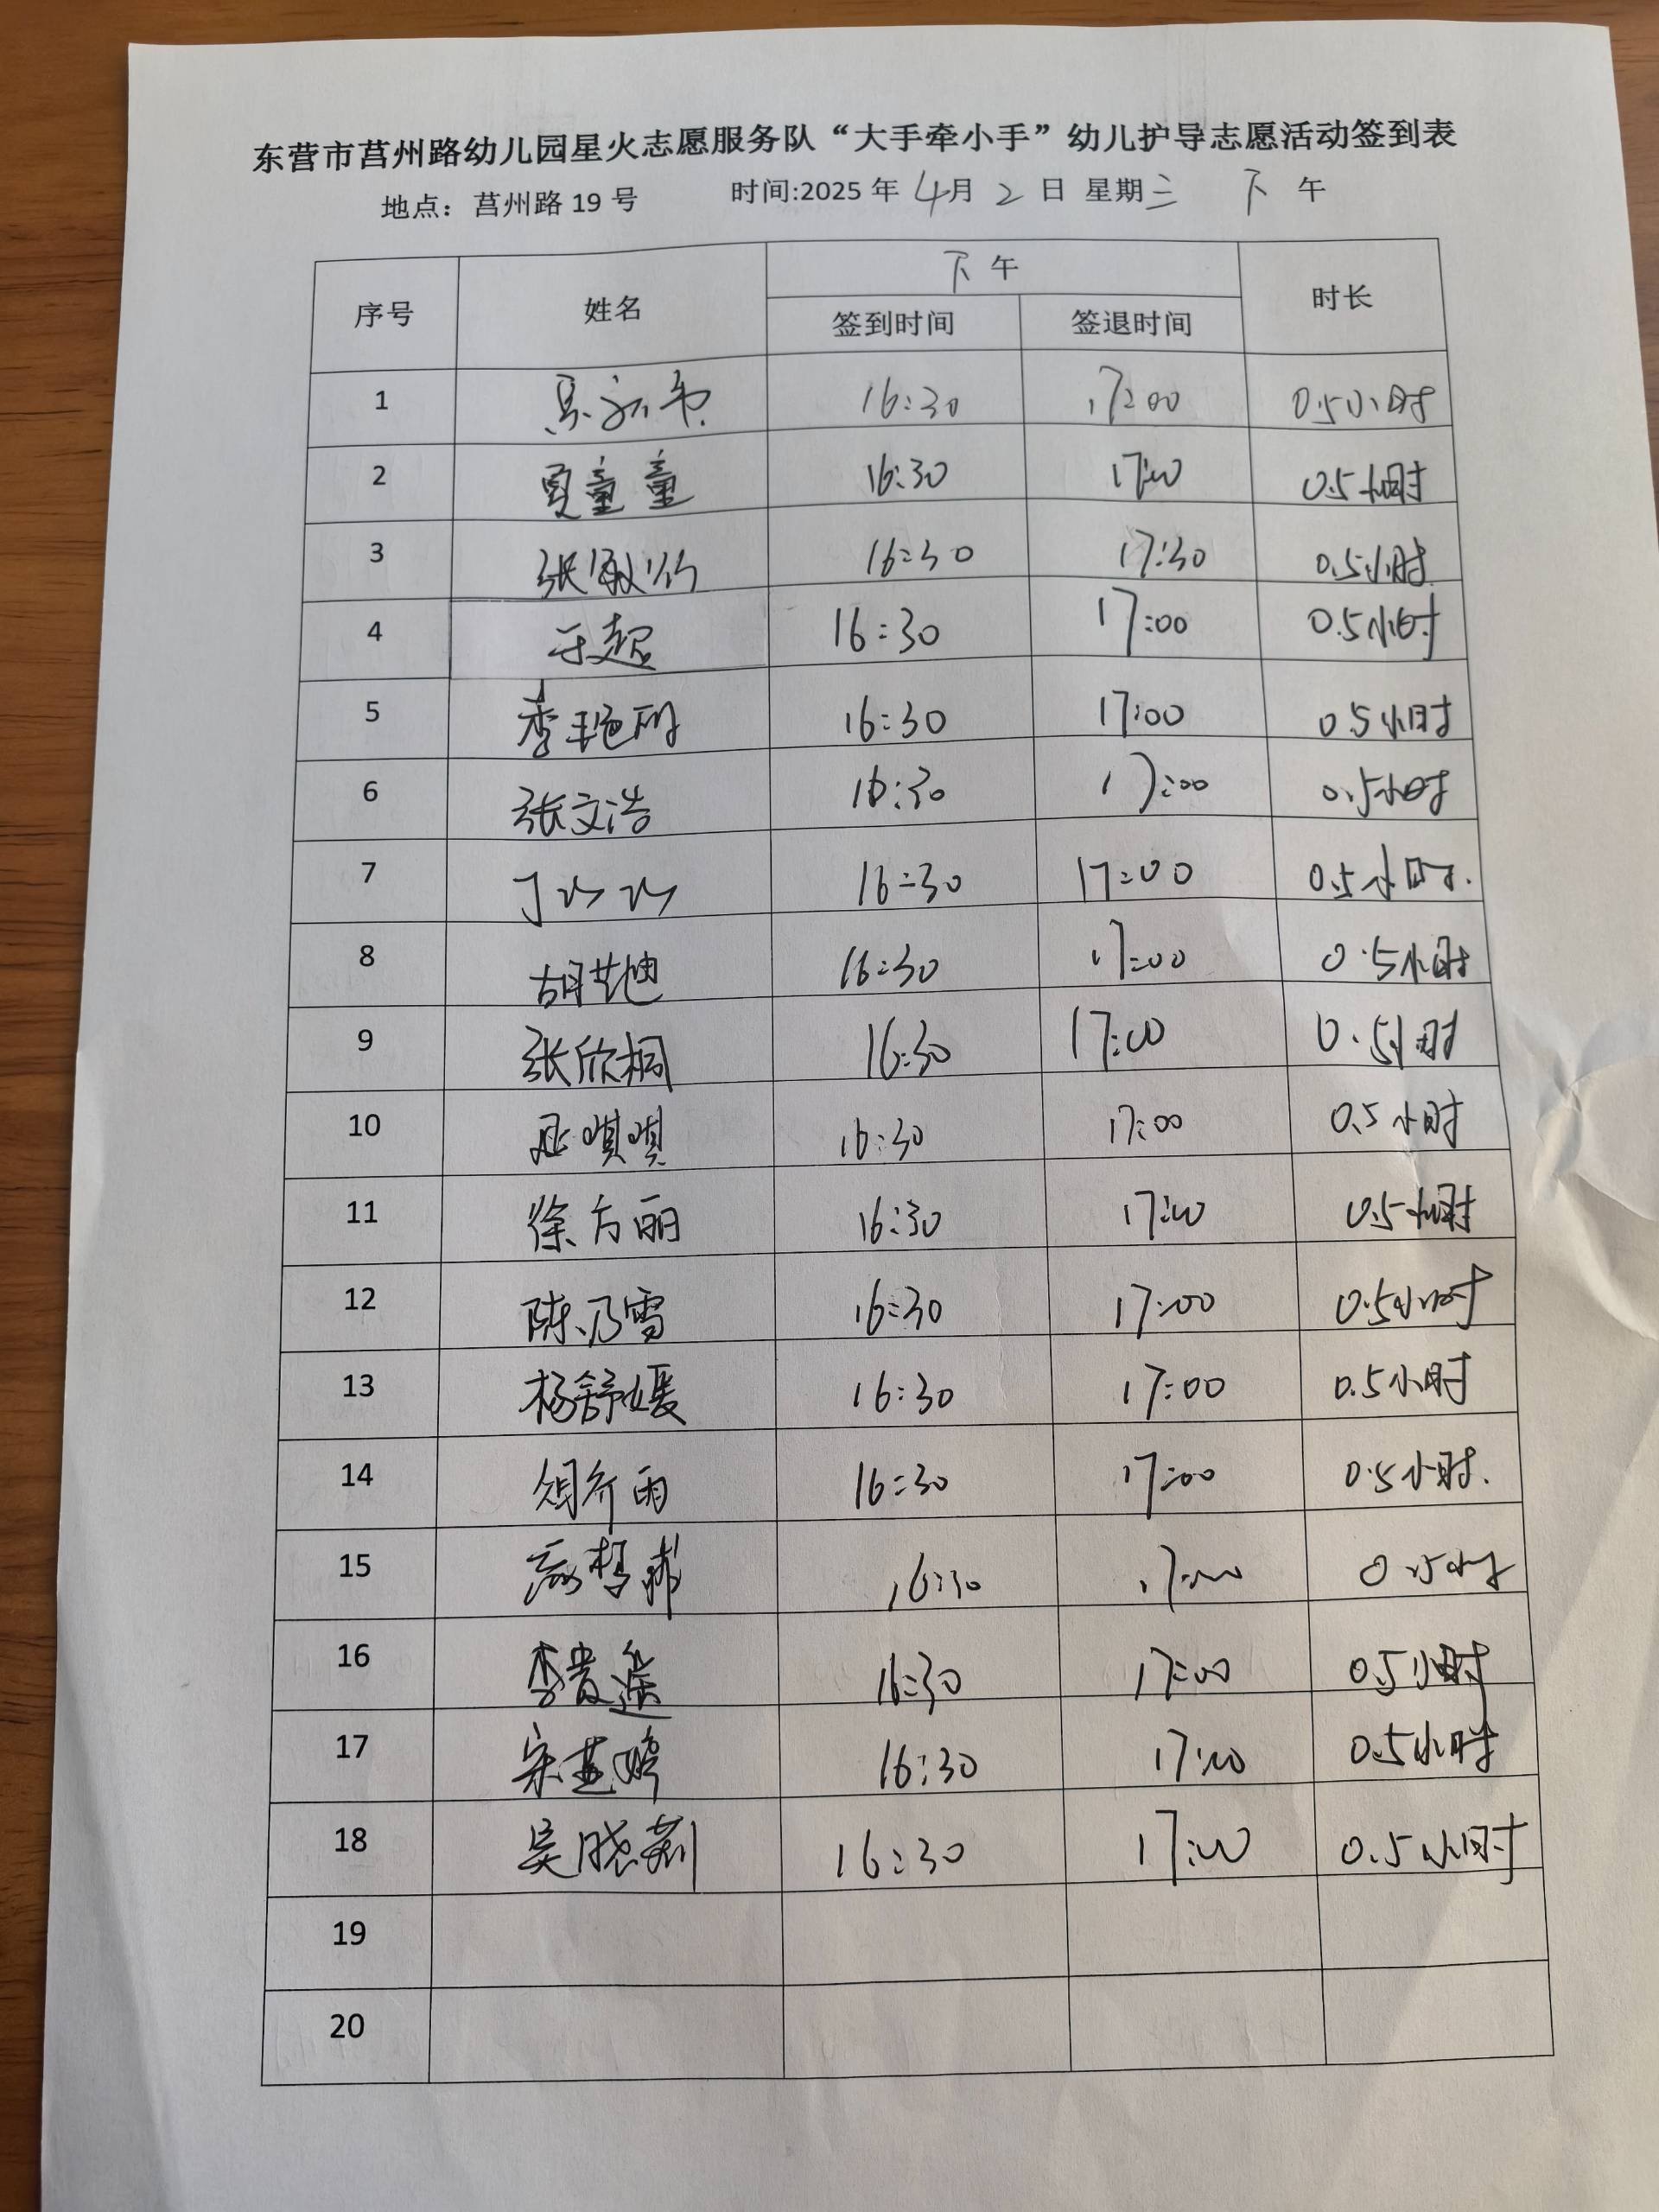 东营市莒州路幼儿园星火志愿服务队“大手牵小手”幼儿护导志愿活动签到表
地点：莒州路 19 号 时间:2025 年 4月 2 日 星期三 下 午
序号 姓名 下 午 时长
签到时间 签退时间
1 16:30 17:00 0.5小时
2 夏童童 16:30 17:00 0.5小时
3 张 16:30 17:30 0.5小时
4 于超 16:30 17:00 0.5小时
5 李艳 16:30 17:00 0.5小时
6 张文浩 16:30 17:00 0.5小时
7 丁 16:30 17:00 0.5小时.
8 胡艺迪 16:30 17:00 0.5小时
9 张欣桐 16:30 17:00 0.5小时
10 16:30 17:00 0.5小时
11 徐方丽 16:30 17:00 0.5小时
12 陈乃雪 16:30 17:00 0.5小时
13 杨舒媛 16:30 17:00 0.5小时
14 16:30 17:00 0.5小时.
15 16:30 17:00 0.5小时
16 李 16:30 17:00 0.5小时
17 宋 16:30 17:00 0.5小时
18 吴晓莉 16:30 17:00 0.5小时
19
20